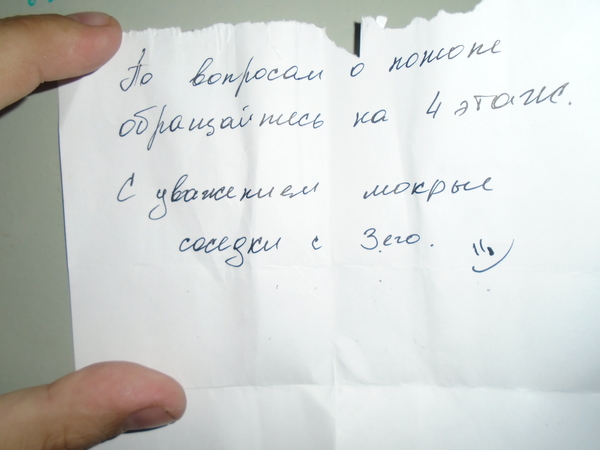 По вопросам о потопе
обращайтесь на 4 этаж.
С уважением мокрые
соседки с 3его.